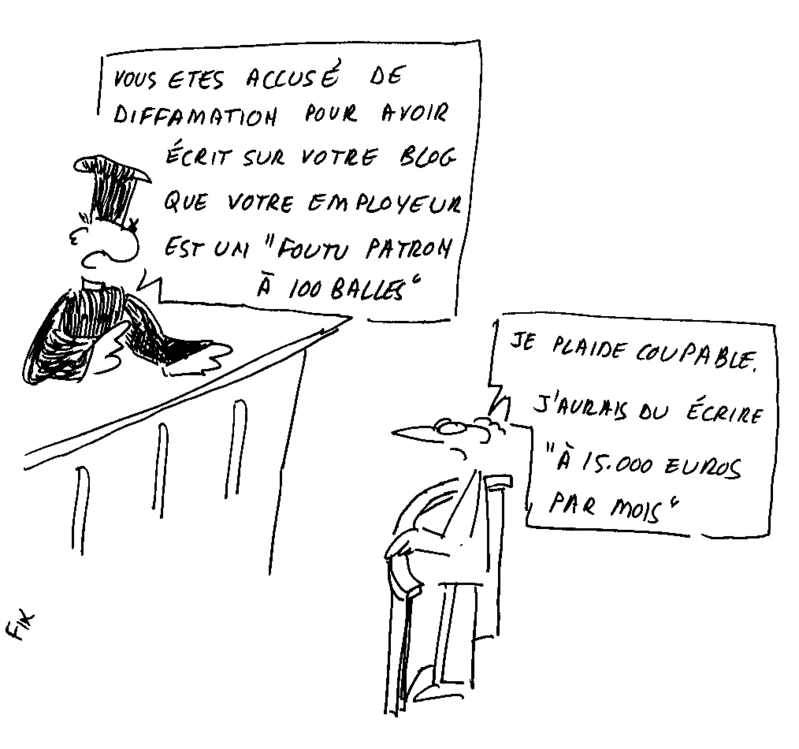 VOUS ETES ACCUSÉ DE
DIFFAMATION POUR AVOIR
ÉCRIT SUR VOTRE BLOG
QUE VOTRE EMPLOYEUR
EST UN "FOUTU PATRON
À 100 BALLES"
JE PLAIDE COUPABLE.
J'AURAIS DU ÉCRIRE
"À 15.000 EUROS
PAR MOIS"
FIX